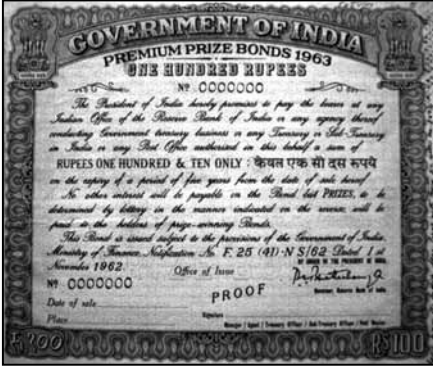 GOVERNMENT OF INDIA
PREMIUM PRIZE BONDS 1963
ONE HUNDRED RUPEES
Nº 0000000
The President of India hereby promises to pay the bearer at any
Indian Office of the Reserve Bank of India or any agency thereof
conducting Government treasury business or any Treasury or Sub-Treasury
in India or any Post Office authorised in this behalf a sum of
RUPEES ONE HUNDRED & TEN ONLY : केवल एक सौ दस रूपये
on the expiry of a period of five years from the date of sale hereof
No other interest will be payable on the Bond but PRIZES, to be
determined by lottery in the manner indicated on the reverse, will be
paid to the holders of prize-winning Bonds.
This Bond is issued subject to the provisions of the Government of India
Ministry of Finance Notification No F. 25 (41)-N S/62 Dated 1st
November 1962.
BY ORDER OF THE PRESIDENT OF INDIA
Office of Issue
Nº 0000000
Governor Reserve Bank of India
PROOF
Date of sale
Signature
Place
Manager / Agent / Treasury Officer / Sub-Treasury Officer / Post Master
RS100